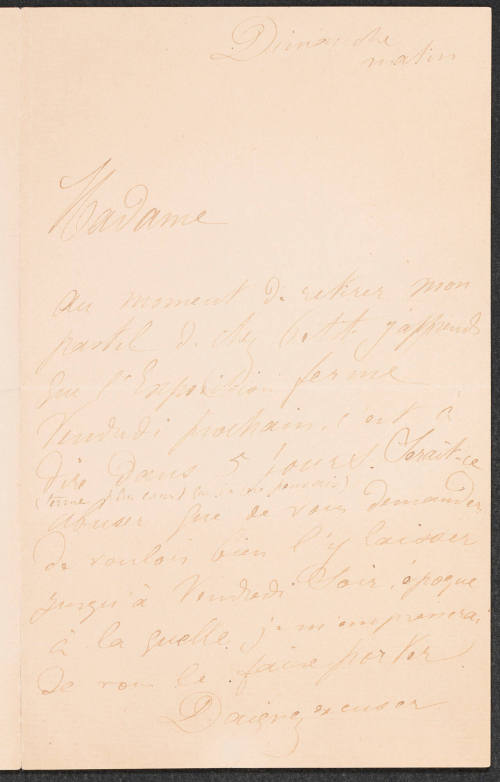 Dimanche
matin
Madame
au moment de retirer mon
pastel de chez Petit j'apprends
que l'Exposition ferme
Vendredi prochain, c'est à
dire dans 5 jours. Serait-ce
abuser que de vous demander
de vouloir bien l'y laisser
jusqu'à Vendredi Soir, époque
à la quelle je m'empresserai
de vous le faire porter.
Daignez excuser